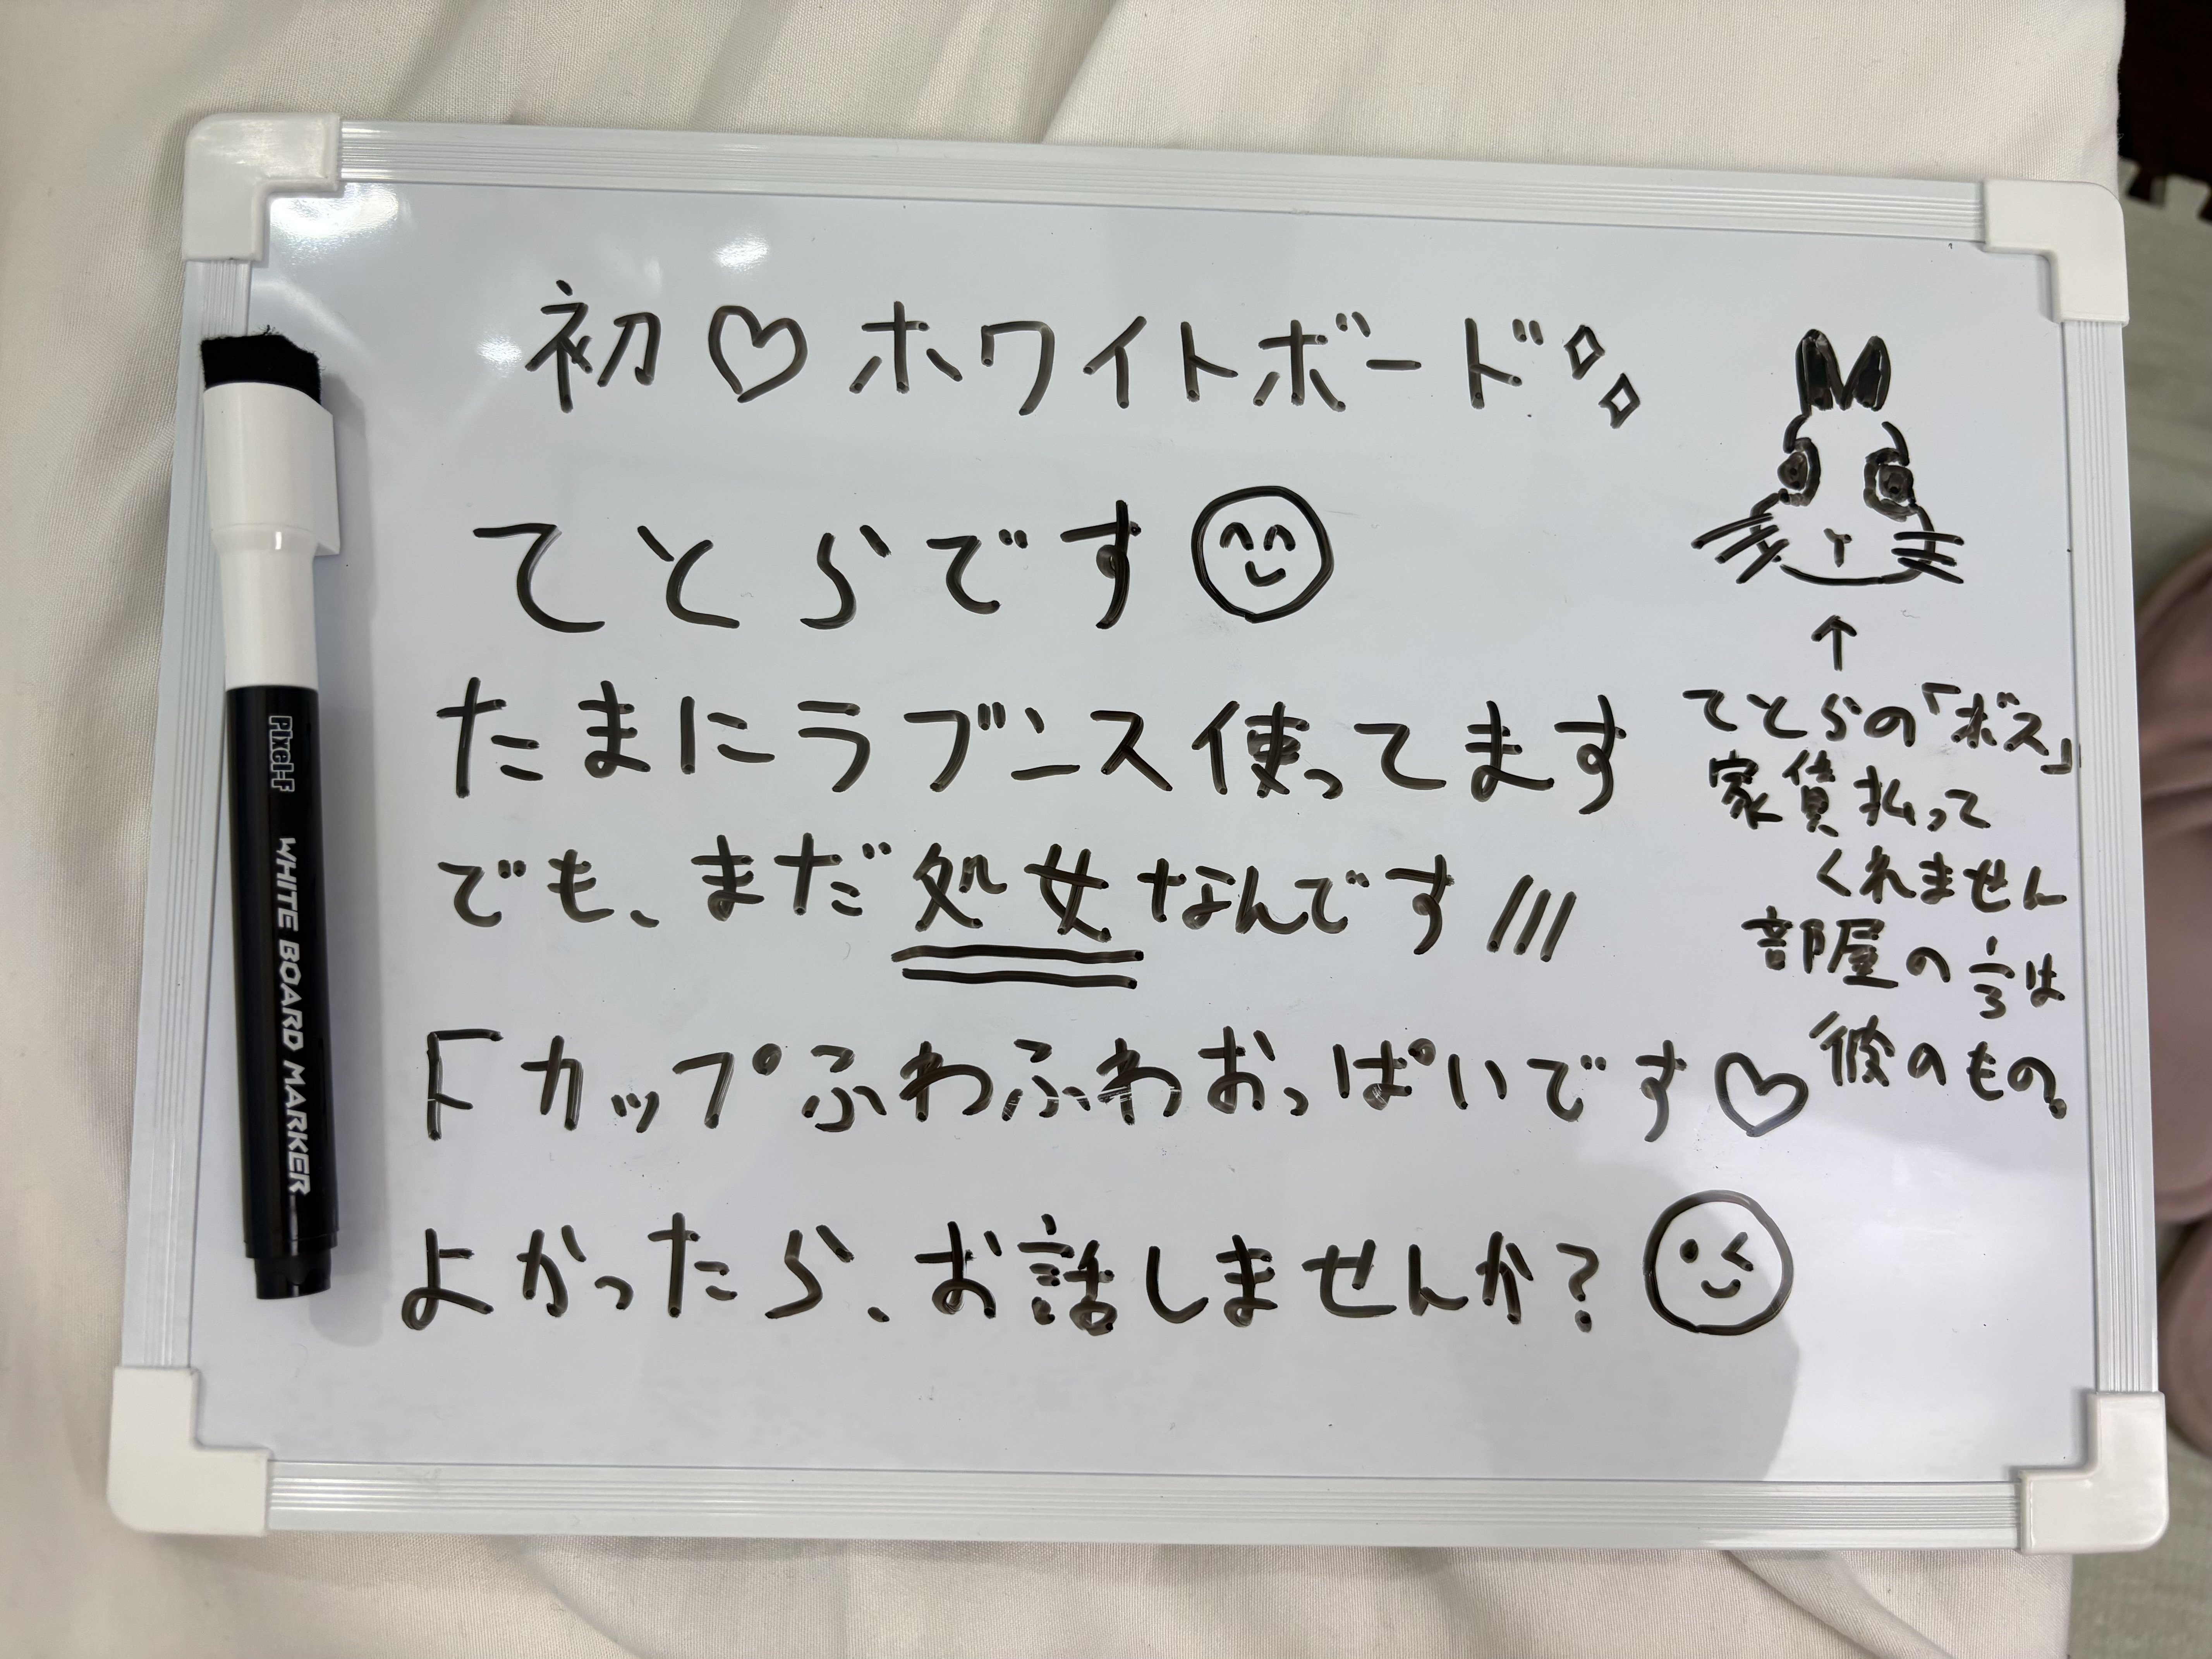 初♡ホワイトボード
てとらです
たまにラブンス使ってます
でも、まだ処女なんです///
Fカップふわふわおっぱいです♡
よかったら、お話しませんか?
↑
てとらの「ボス」
家賃払って
くれません
部屋の1/3は
彼のもの。
Pixel-F
WHITE BOARD MARKER